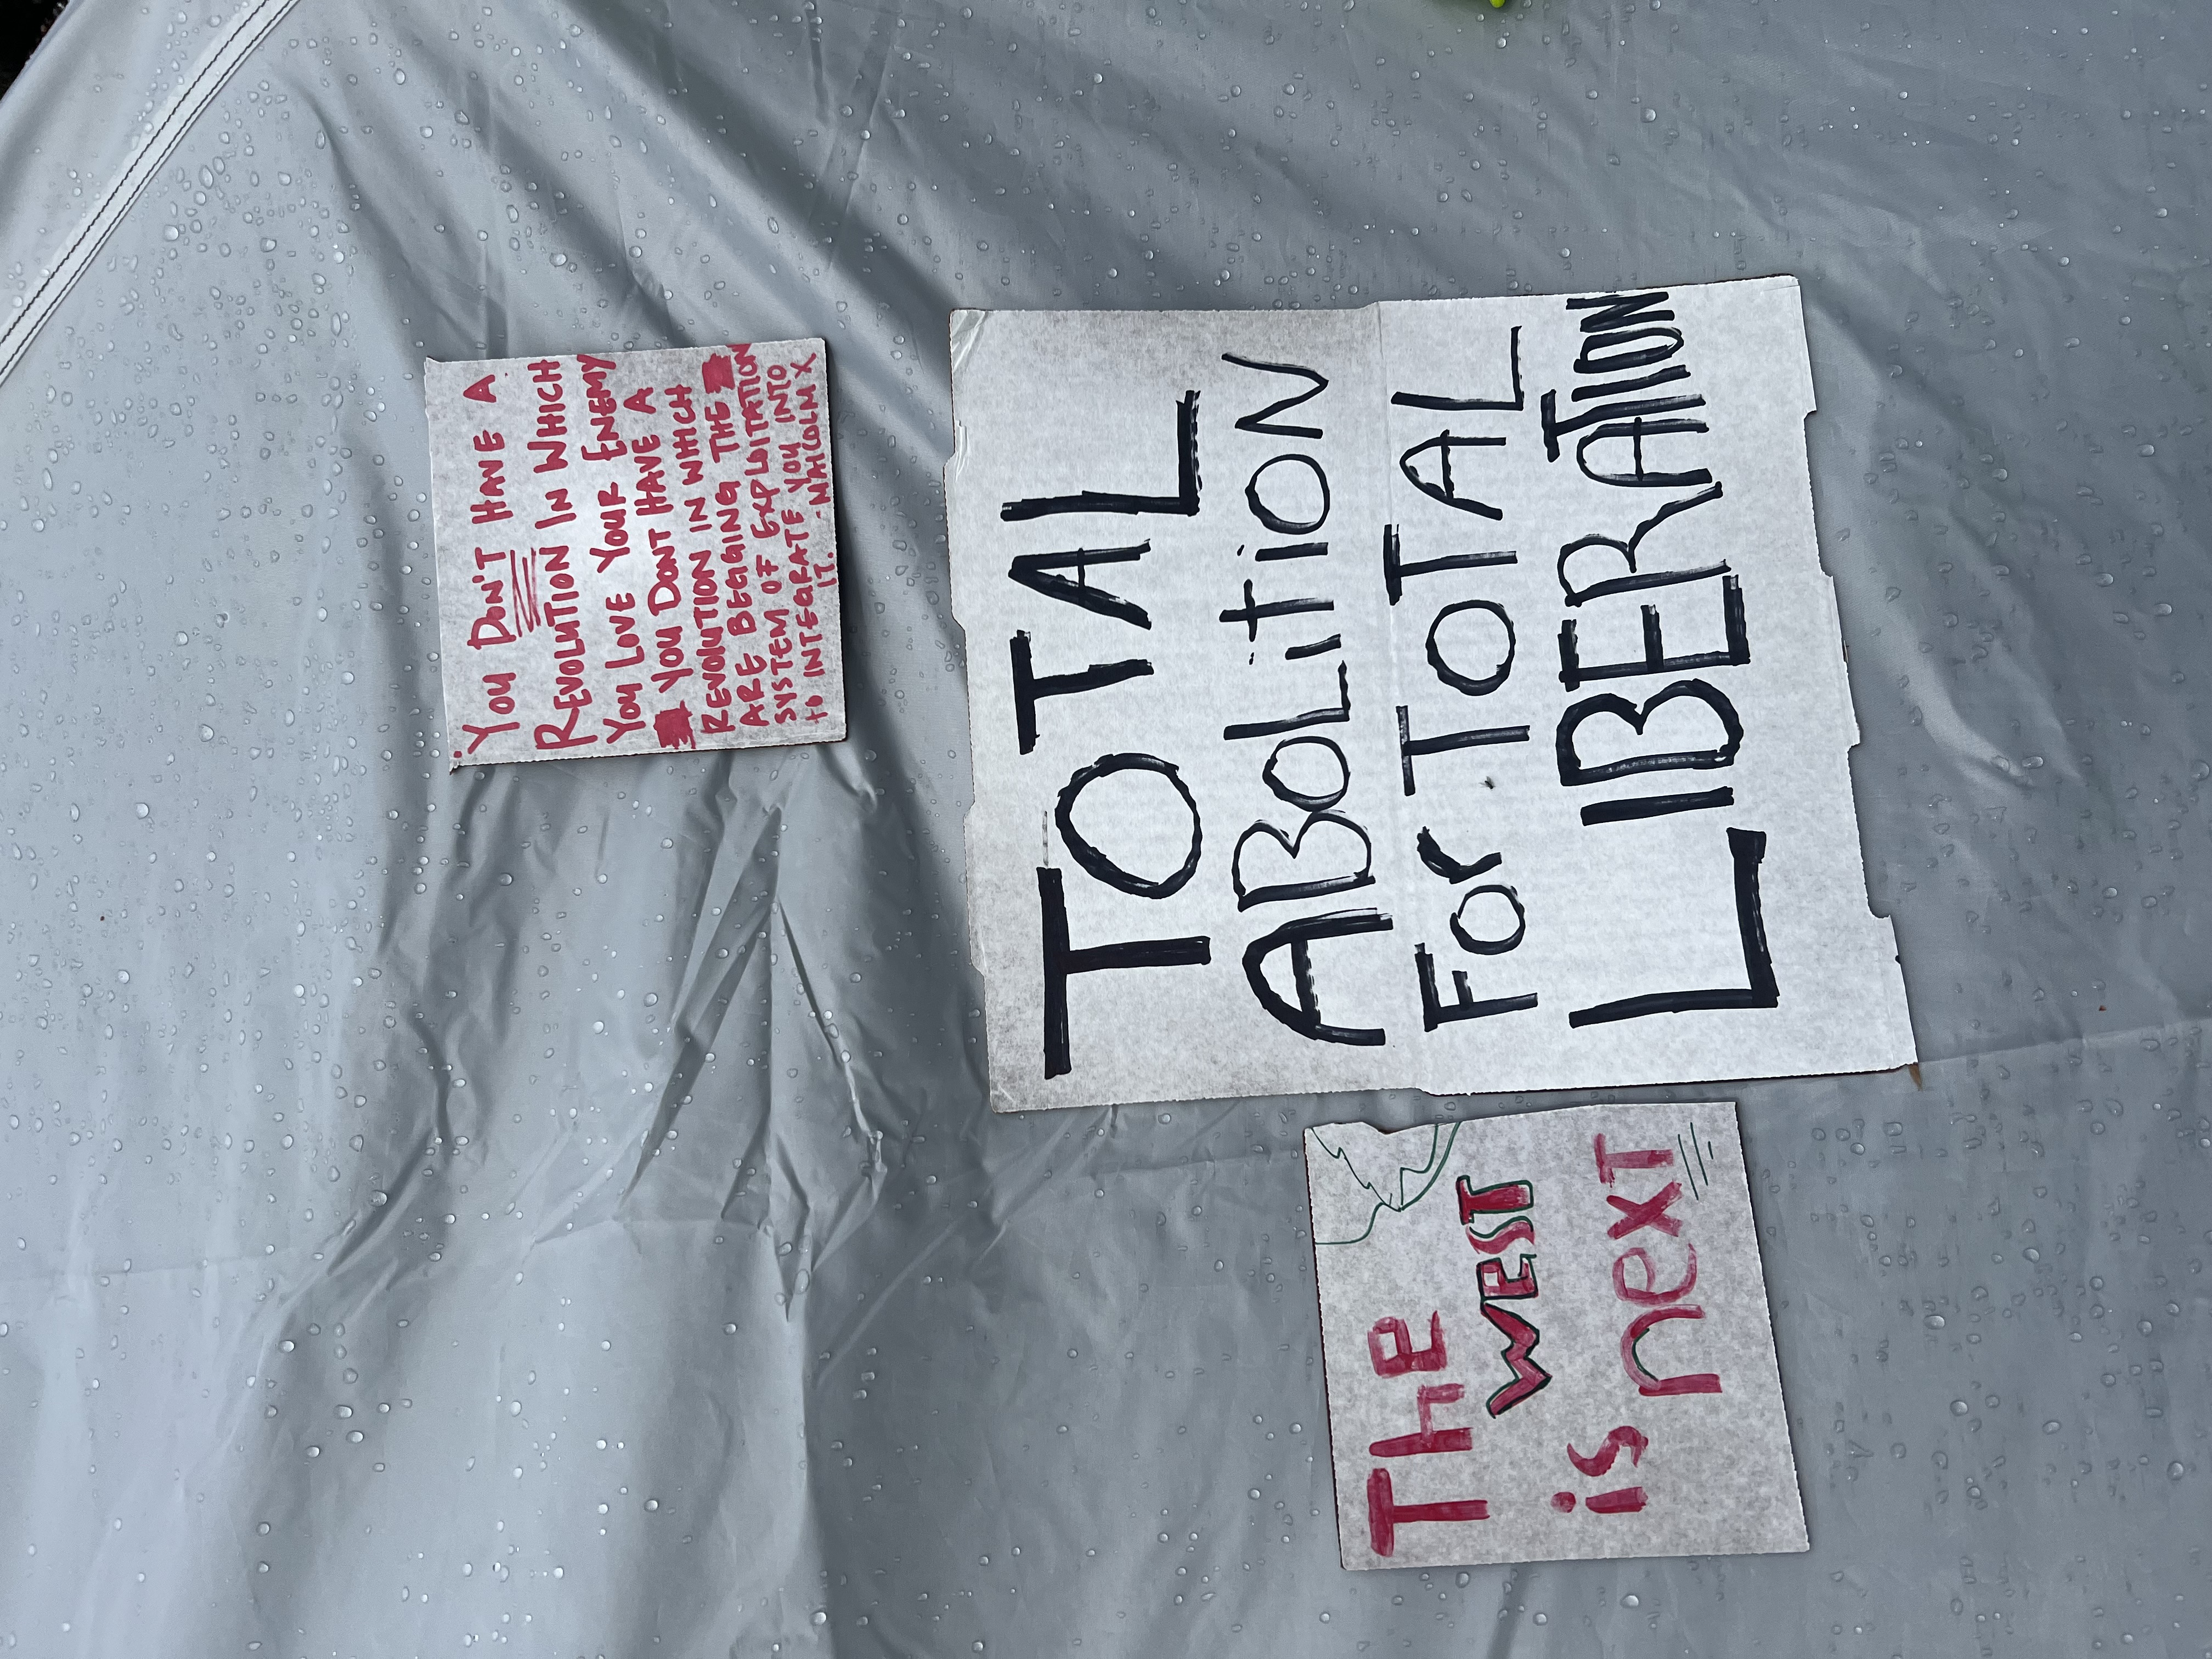 You DON'T HAVE A
REVOLUTION IN WHICH
You LOVE YOUR ENEMY
You DONT HAVE A
REVOLUTION IN WHICH
ARE BEGGING THE
SYSTEM OF EXPLOITATION
to INTEGRATE YOU INTO
IT. -MALCOLM X
TOTAL
ABOLitiON
For TOTAL
LIBERATION
The
WEST
is
nexT